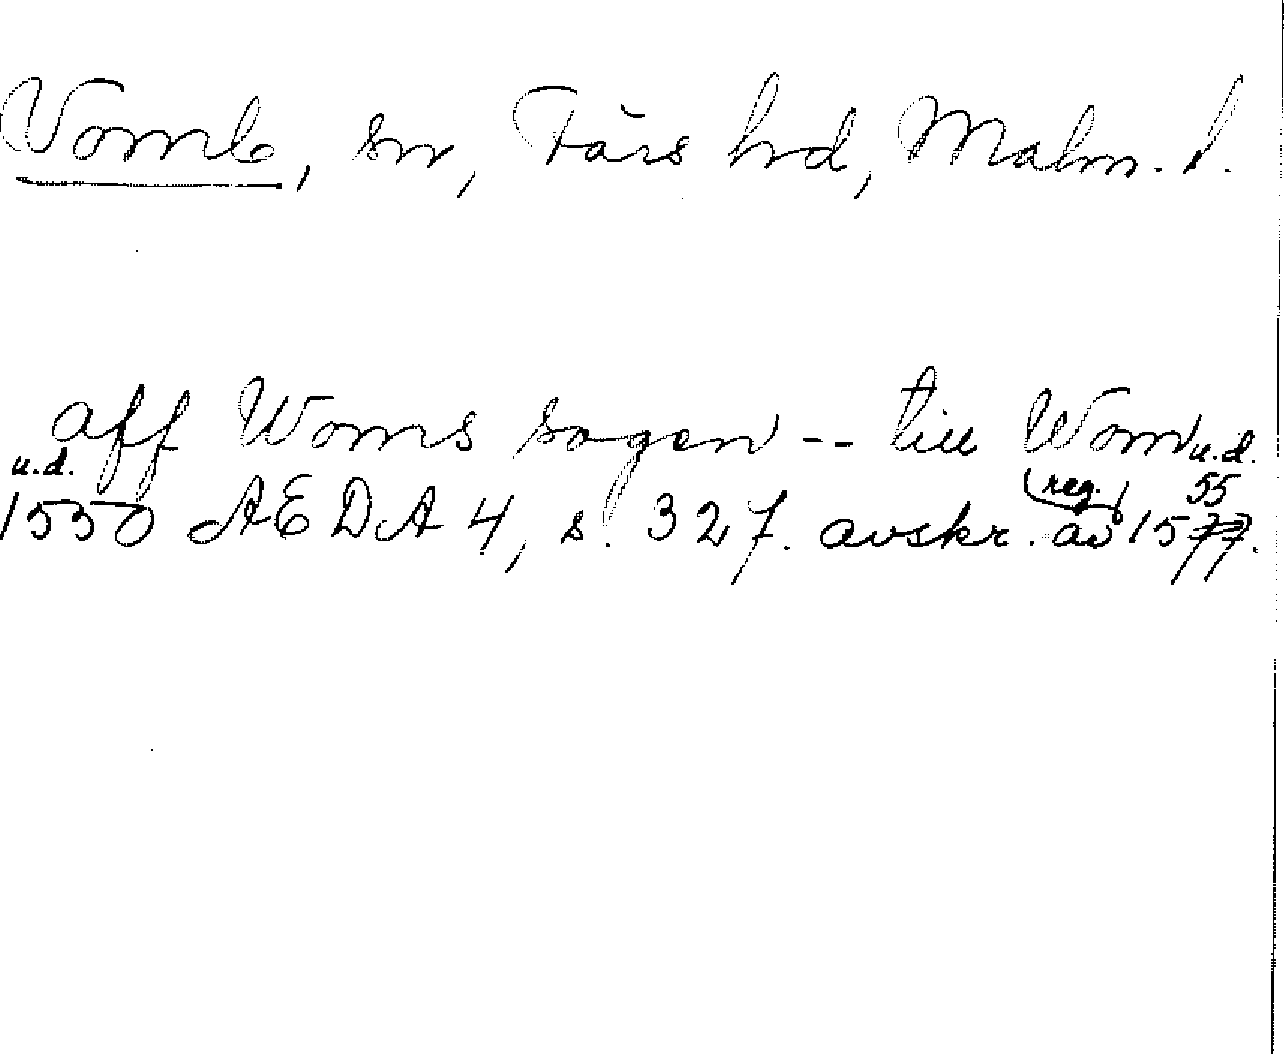 Vomb, sn, Färs hrd, Malm. l.
aff Woms sogen -- till Wom u.d.
u.d. (reg.) 55
1550 AEDA 4, s. 327. avskr. av 1577.